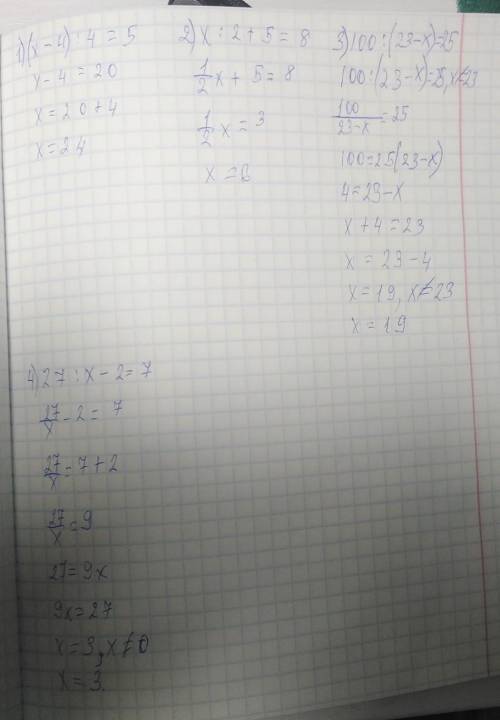 1) (x-4) : 4 = 5
x-4 = 20
x = 20+4
x = 24
2) x : 2 + 5 = 8
1/2 x + 5 = 8
1/2 x = 3
x = 6
3) 100 : (23-x) = 25
100 : (23-x) = 25, x≠23
100/(23-x) = 25
100 = 25(23-x)
4 = 23-x
x + 4 = 23
x = 23-4
x = 19, x≠23
x = 19
4) 27 : x - 2 = 7
27/x - 2 = 7
27/x = 7+2
27/x = 9
27 = 9x
9x = 27
x = 3, x≠0
x = 3.